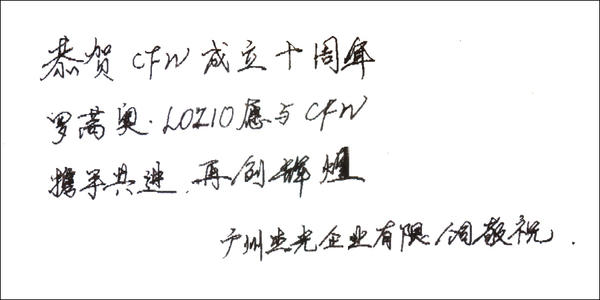 恭贺 CFW 成立十周年
罗蒿奥·LOZIO愿与CFW
携手共进,再创辉煌
广州杰光企业有限公司敬祝.